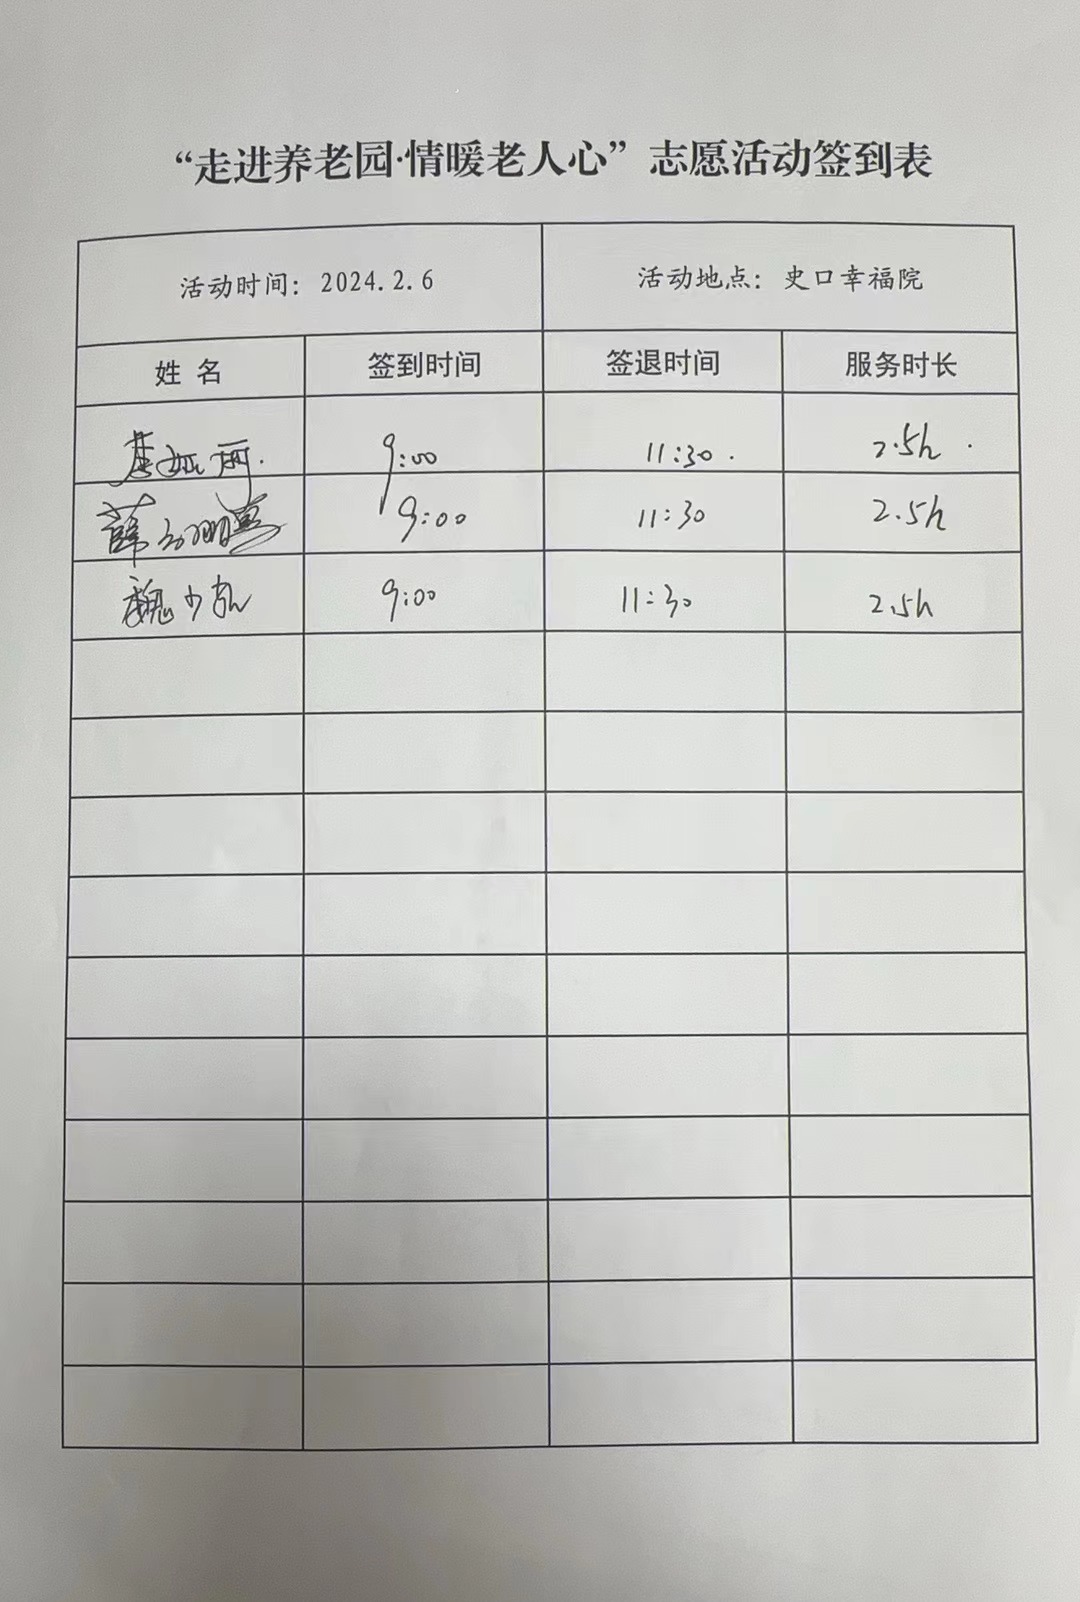 “走进养老园·情暖老人心”志愿活动签到表
活动时间：2024.2.6 活动地点：史口幸福院
姓 名 签到时间 签退时间 服务时长
9:00 11:30 2.5h
薛 9:00 11:30 2.5h
魏少航 9:00 11:30 2.5h